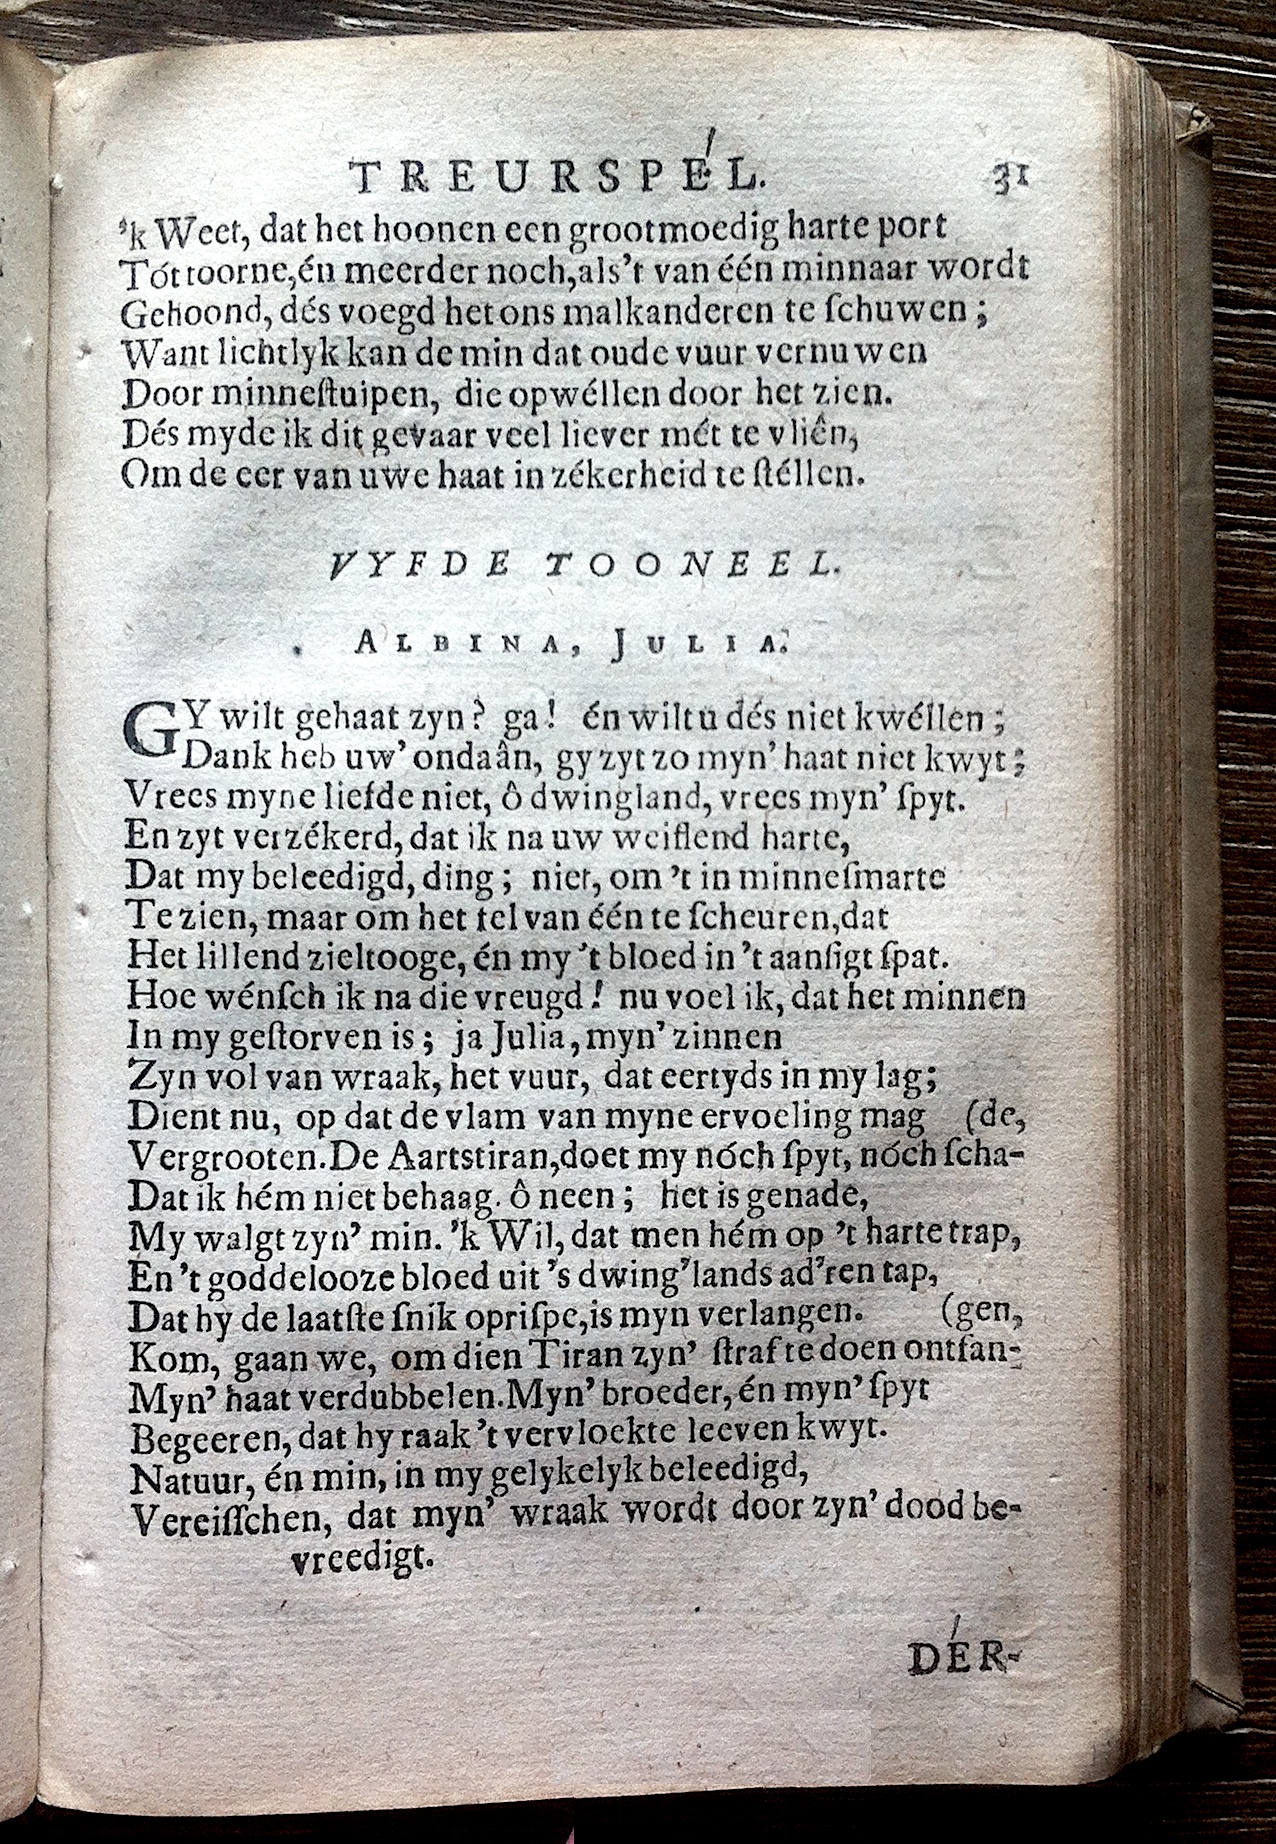 TREURSPÉL. 31
'k Weet, dat het hoonen een grootmoedig harte port
Tót toorne, én meerder noch, als 't van één minnaar wordt
Gehoond, dés voegd het ons malkanderen te ſchuwen;
Want lichtlyk kan de min dat oude vuur vernuwen
Door minneſtuipen, die opwéllen door het zien.
Dés myde ik dit gevaar veel liever mét te vliên,
Om de eer van uwe haat in zékerheid te ſtéllen.
VYFDE TOONEEL.
ALBINA, JULIA.
GY wilt gehaat zyn? ga! én wilt u dés niet kwéllen;
Dank heb uw' ondaân, gy zyt zo myn' haat niet kwyt;
Vrees myne liefde niet, ô dwingland, vrees myn' ſpyt.
En zyt verzékerd, dat ik na uw weiflend harte,
Dat my beleedigd, ding; niet, om 't in minneſmarte
Te zien, maar om het fel van één te ſcheuren, dat
Het lillend zieltooge, én my 't bloed in 't aanſigt ſpat.
Hoe wénſch ik na die vreugd! nu voel ik, dat het minnen
In my geſtorven is; ja Julia, myn' zinnen
Zyn vol van wraak, het vuur, dat eertyds in my lag;
Dient nu, op dat de vlam van myne ervoeling mag (de,
Vergrooten. De Aartstiran, doet my nóch ſpyt, nóch ſcha-
Dat ik hém niet behaag. ô neen; het is genade,
My walgt zyn' min. 'k Wil, dat men hém op 't harte trap,
En 't goddelooze bloed uit 's dwing'lands ad'ren tap,
Dat hy de laatſte ſnik opriſpe, is myn verlangen. (gen,
Kom, gaan we, om dien Tiran zyn' ſtraf te doen ontfan-
Myn' haat verdubbelen. Myn' broeder, én myn' ſpyt
Begeeren, dat hy raak 't vervloekte leeven kwyt.
Natuur, én min, in my gelykelyk beleedigd,
Vereiſſchen, dat myn' wraak wordt door zyn' dood be-
vreedigt.
DÉR-